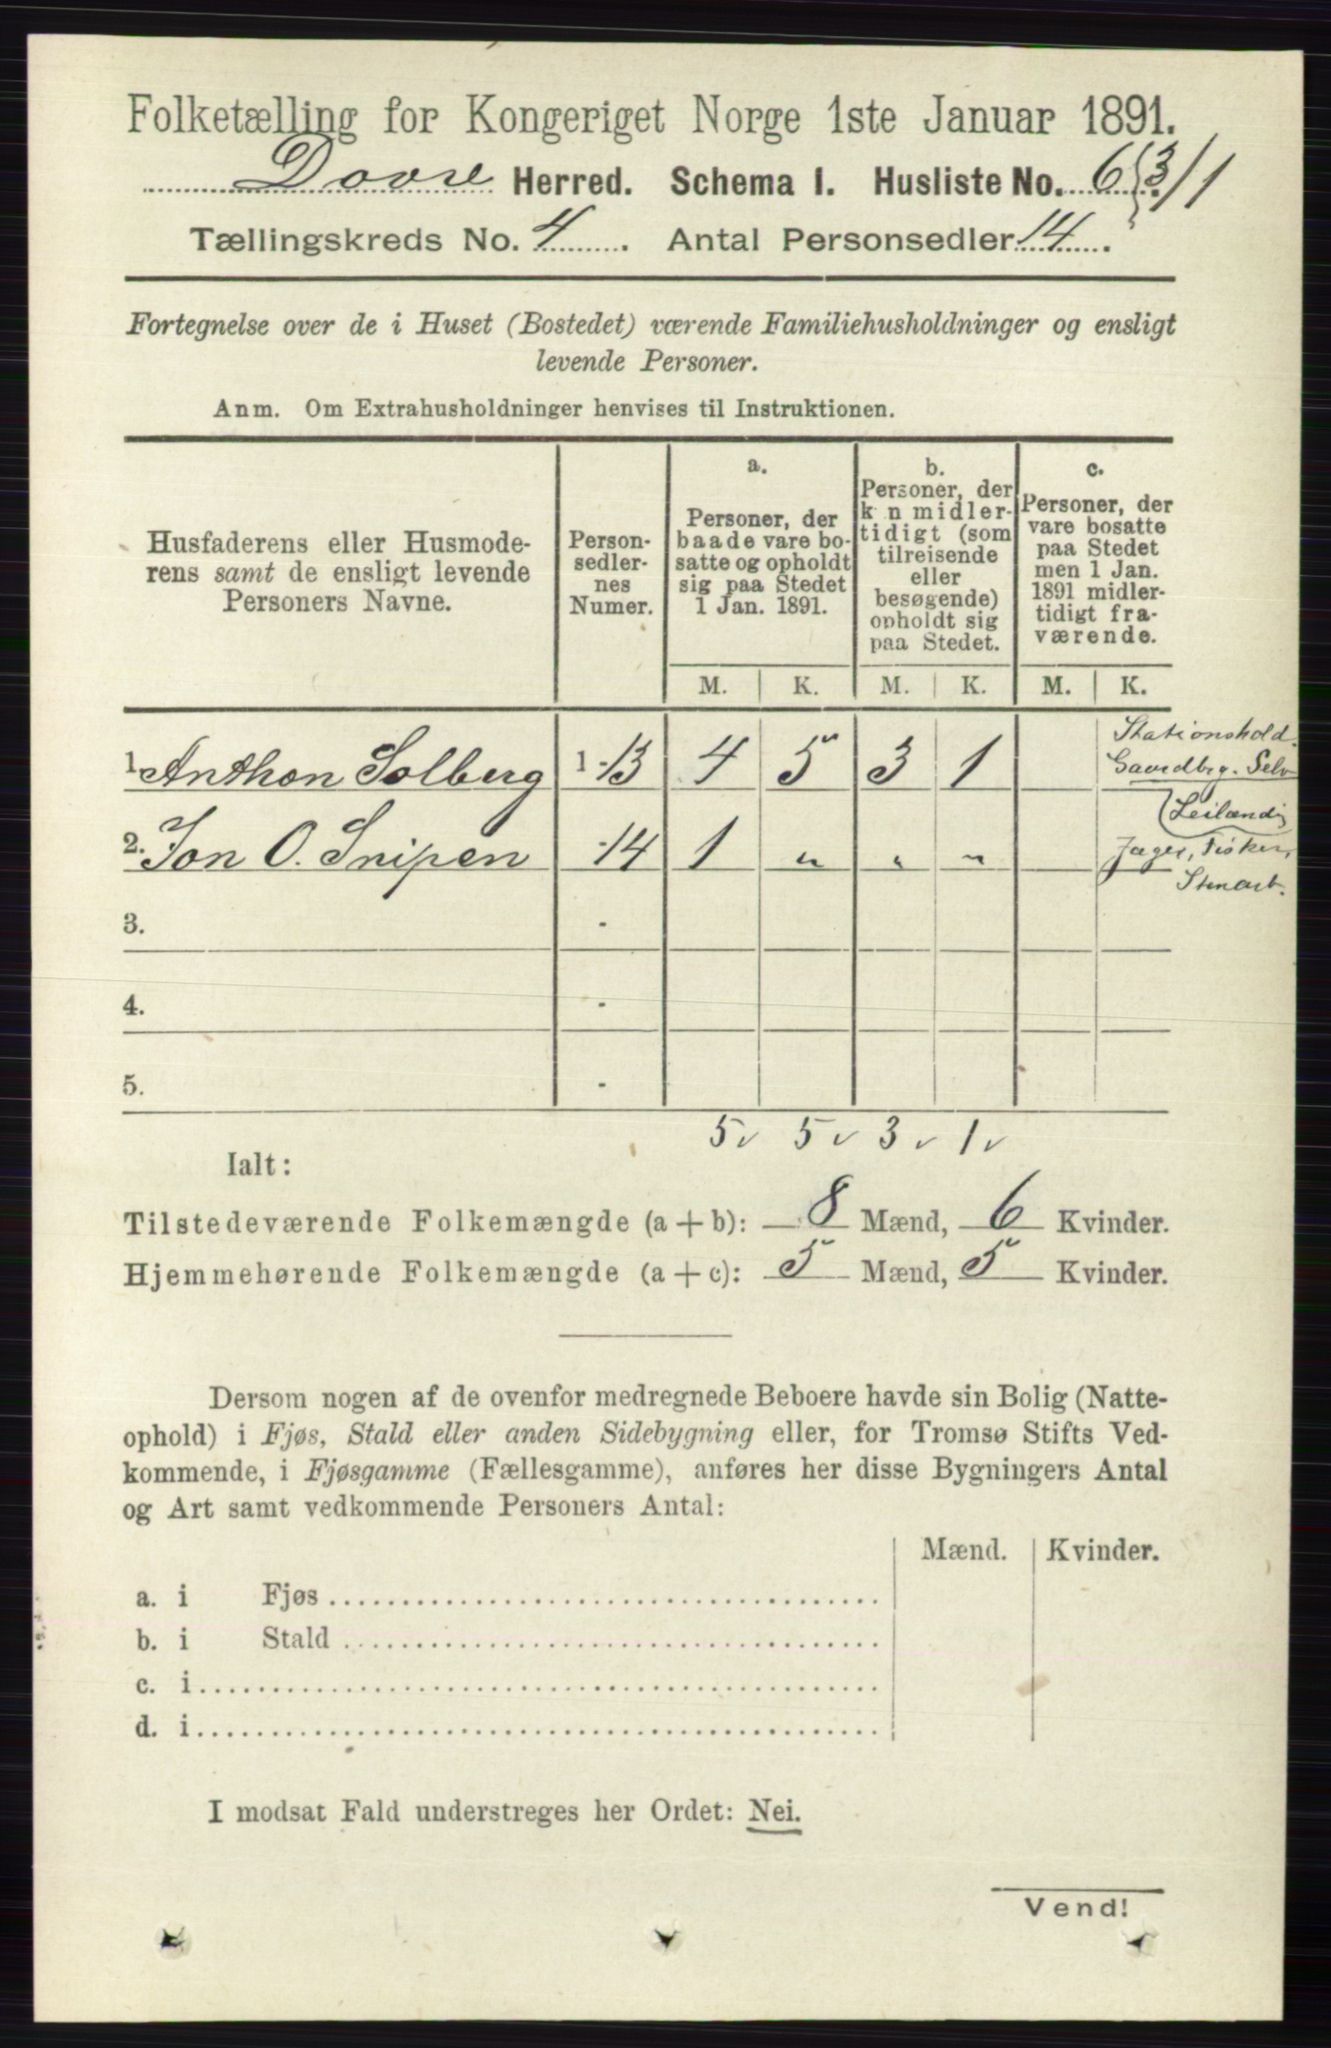 Folketælling for Kongeriget Norge 1ste Januar 1891.
Dovre Herred. Schema I. Husliste No. 6 {3/1
Tællingskreds No. 4. Antal Personsedler 14.
Fortegnelse over de i Huset (Bostedet) værende Familiehusholdninger og ensligt
levende Personer.
Anm. Om Extrahusholdninger henvises til Instruktionen.
Husfaderens eller Husmode-
rens samt de ensligt levende
Personers Navne.
Person-
sedler-
nes
Numer.
a.
Personer, der
baade vare bo-
satte og opholdt
sig paa Stedet
1 Jan. 1891.
b.
Personer, der
k n midler-
tidigt (som
tilreisende
eller
besøgende)
opholdt sig
paa Stedet.
c.
Personer, der
vare bosatte
paa Stedet
men 1 Jan.
1891 midler-
tidigt fra-
værende.
M. K. M. K. M. K.
1. Anthon Solberg 1-13 4 5 3 1 Stationshold.
Gaardbrg. Selv
2. Jon O. Snipen -14 1 " " " (Leilænding
Jæger, Fisker,
Stenarb.
3. -
4. -
5. -
5 v 5 v 3 v 1 v
Ialt:
Tilstedeværende Folkemængde (a + b): 8 Mænd, 6 Kvinder.
Hjemmehørende Folkemængde (a + c): 5 Mænd, 5 Kvinder.
Dersom nogen af de ovenfor medregnede Beboere havde sin Bolig (Natte-
ophold) i Fjøs, Stald eller anden Sidebygning eller, for Tromsø Stifts Ved-
kommende, i Fjøsgamme (Fællesgamme), anføres her disse Bygningers Antal
og Art samt vedkommende Personers Antal:
Mænd. Kvinder.
a. i Fjøs
b. i Stald
c. i
d. i
I modsat Fald understreges her Ordet: Nei.
Vend!